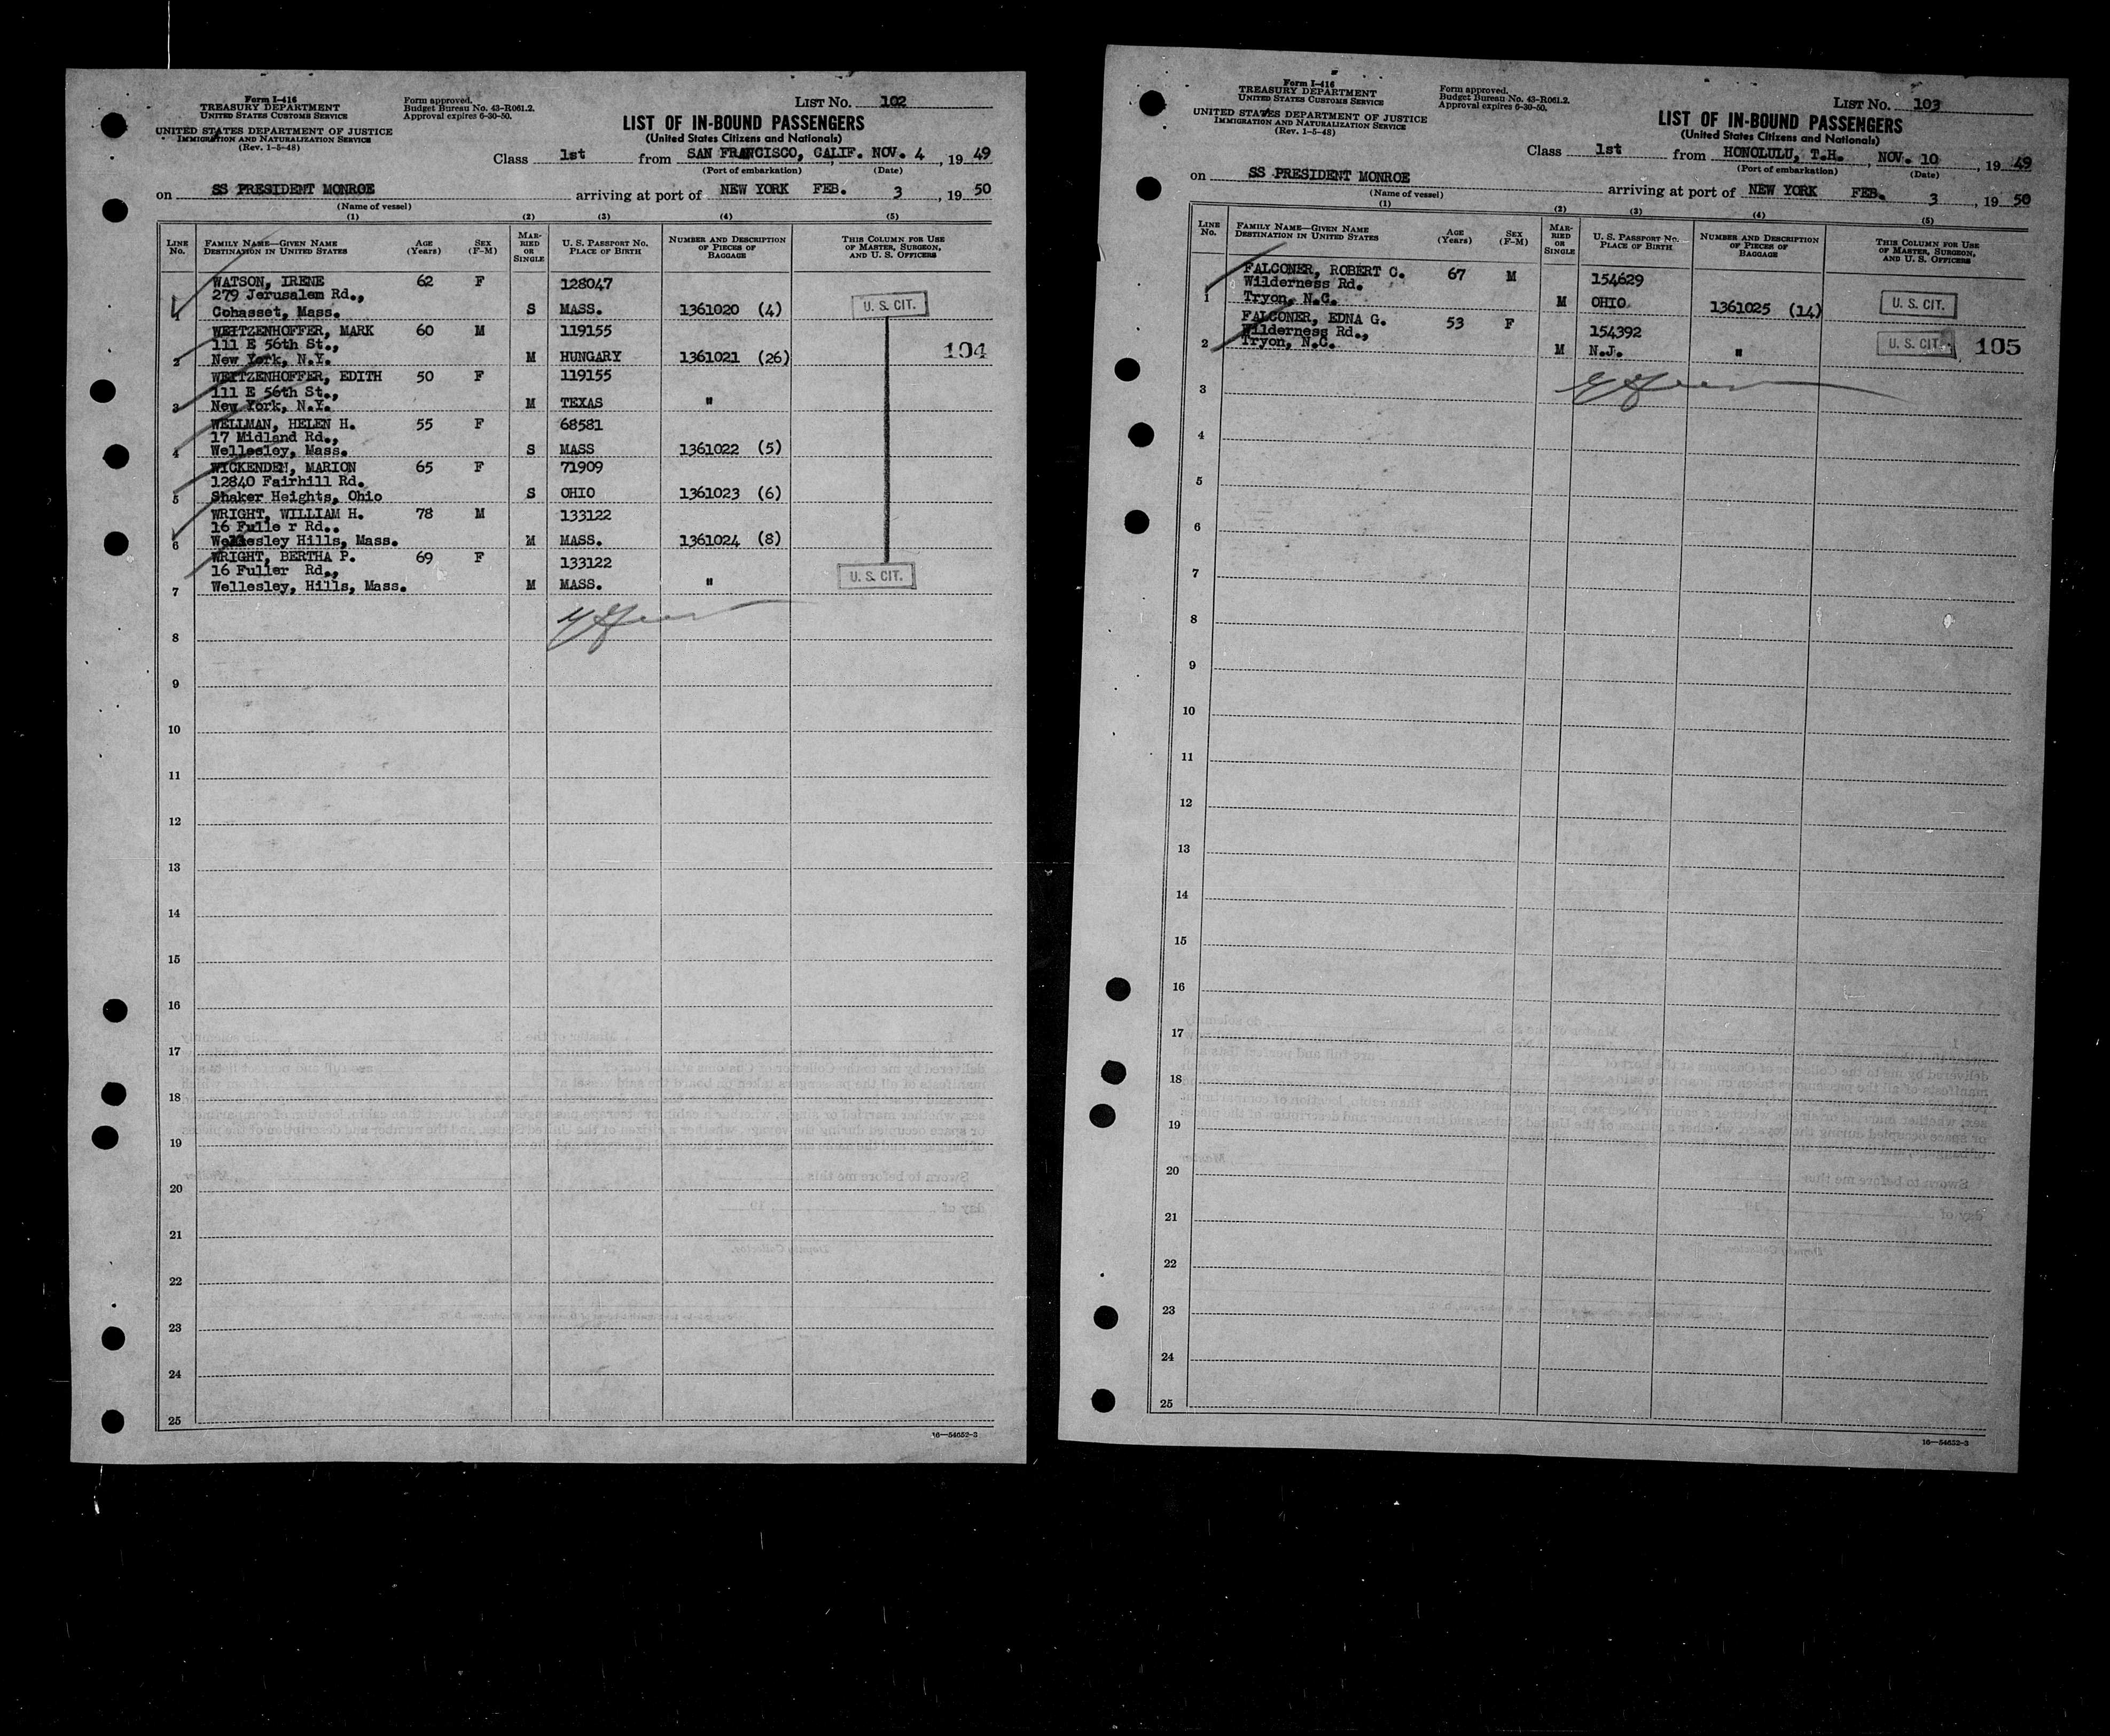 Form I-416
TREASURY DEPARTMENT
UNITED STATES CUSTOMS SERVICE
UNITED STATES DEPARTMENT OF JUSTICE
IMMIGRATION AND NATURALIZATION SERVICE
(Rev. 1-5-48)
Form approved.
Budget Bureau No. 43-R061.2.
Approval expires 6-30-50.
LIST NO. 102
LIST OF IN-BOUND PASSENGERS
(United States Citizens and Nationals)
Class 1st from SAN FRANCISCO, CALIF. NOV. 4, 1949
(Port of embarkation) (Date)
on SS PRESIDENT MONROE arriving at port of NEW YORK FEB. 3, 1950
(Name of vessel)
(1) (2) (3) (4) (5)
LINE NO. FAMILY NAME—GIVEN NAME DESTINATION IN UNITED STATES AGE (Years) SEX (F-M) MARRIED OR SINGLE U. S. PASSPORT NO. PLACE OF BIRTH NUMBER AND DESCRIPTION OF PIECES OF BAGGAGE THIS COLUMN FOR USE OF MASTER, SURGEON, AND U. S. OFFICERS
WATSON, IRENE 62 F 128047
279 Jerusalem Rd.,
1 Cohasset, Mass. S MASS. 1361020 (4) U. S. CIT.
WEITZENHOFFER, MARK 60 M 119155
111 E 56th St.,
2 New York, N.Y. M HUNGARY 1361021 (26) 104
WEITZENHOFFER, EDITH 50 F 119155
111 E 56th St.,
3 New York, N.Y. M TEXAS "
WELLMAN, HELEN H. 55 F 68581
17 Midland Rd.,
4 Wellesley, Mass. S MASS 1361022 (5)
WICKENDEN, MARION 65 F 71909
12840 Fairhill Rd.
5 Shaker Heights, Ohio S OHIO 1361023 (6)
WRIGHT, WILLIAM H. 78 M 133122
16 Fulle r Rd..
6 Wellesley Hills, Mass. M MASS. 1361024 (8)
WRIGHT, BERTHA P. 69 F 133122
16 Fuller Rd.,
7 Wellesley, Hills, Mass. M MASS. " U. S. CIT.
8
9
10
11
12
13
14
15
16
17
18
19
20
21
22
23
24
25
16—54652-3
Form I-416
TREASURY DEPARTMENT
UNITED STATES CUSTOMS SERVICE
UNITED STATES DEPARTMENT OF JUSTICE
IMMIGRATION AND NATURALIZATION SERVICE
(Rev. 1-5-48)
Form approved.
Budget Bureau No. 43-R061.2.
Approval expires 6-30-50.
LIST NO. 103
LIST OF IN-BOUND PASSENGERS
(United States Citizens and Nationals)
Class 1st from HONOLULU, T.H., NOV. 10, 1949
(Port of embarkation) (Date)
on SS PRESIDENT MONROE arriving at port of NEW YORK FEB. 3, 1950
(Name of vessel)
(1) (2) (3) (4) (5)
LINE NO. FAMILY NAME—GIVEN NAME DESTINATION IN UNITED STATES AGE (Years) SEX (F-M) MARRIED OR SINGLE U. S. PASSPORT NO. PLACE OF BIRTH NUMBER AND DESCRIPTION OF PIECES OF BAGGAGE THIS COLUMN FOR USE OF MASTER, SURGEON, AND U. S. OFFICERS
FALCONER, ROBERT C. 67 M 154629
Wilderness Rd.
1 Tryon, N.C. M OHIO 1361025 (14) U. S. CIT.
FALCONER, EDNA G. 53 F 154392
Wilderness Rd.,
2 Tryon, N.C. M N.J. " U. S. CIT. 105
3
4
5
6
7
8
9
10
11
12
13
14
15
16
17
18
19
20
21
22
23
24
25
16—54652-3